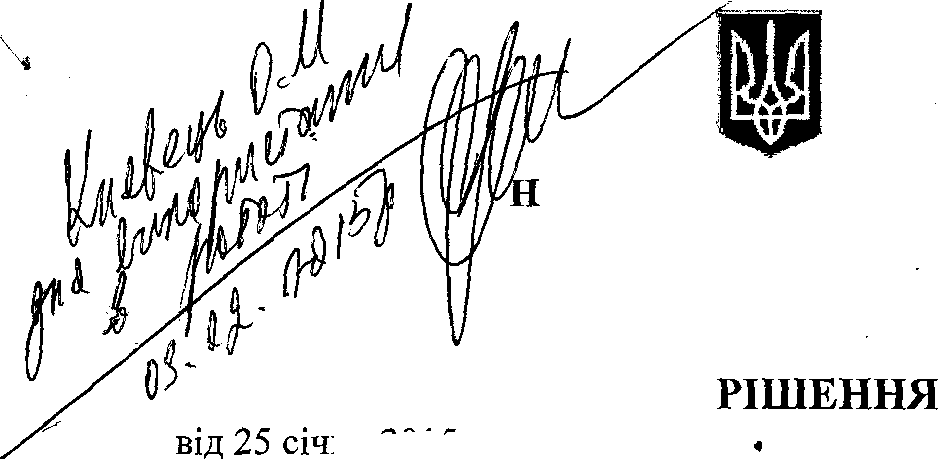 Києвець О.М
для використання
в роботі
03.02.2015р
Н
РІШЕННЯ
від 25 січ